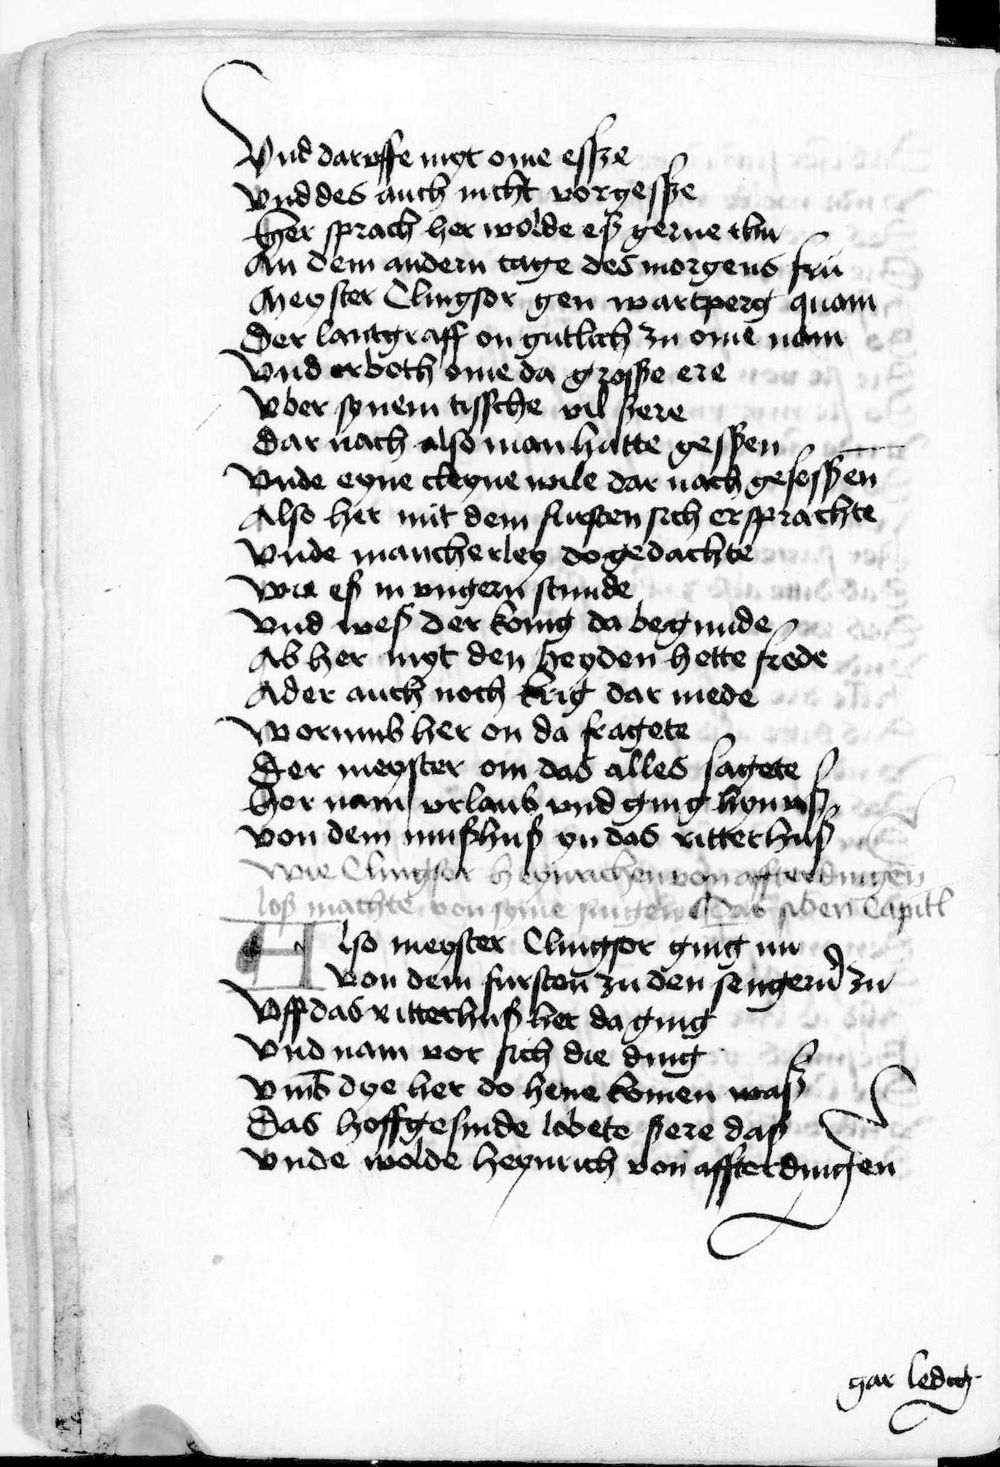 Vnd daruffe myt ome essze
vnd des auch nicht vorgessze
Her sprach her wolde eß gerne thu
An dem andern tage des morgens fru
Meyster Clingsor gen wartperg quam
Der lantgraff on gutlich zu ome nam
Vnd erboth ome da grosse ere
Vber synem tissche vil sere
Dar nach also man hatte gessen
Vnde eyne cleyne wile dar nach gesessen
Also her mit dem fursten sich ersprachte
Vnde mancherley do gedachte
Wie eß in vngern stunde
Vnd weß der konig da begunde
Ab her myt den heyden hette frede
Ader auch noch krig dar mede
Worumb her on da fragete
Der meyster om das alles sagete
Her nam vrlaub vnd ging hyn uß
von dem mußhuß yn das ritterhuß
Wie Clingsor heynrichen von affterdingen
loß machte von syme singen Das siben Capitl
Also meyster Clingsor ging nu
von dem fursten zu den sengern zu
Vff das ritterhuß her da ging
Vnd nam vor sich die ding
Vmb dye her do hene komen waß
Das hoffgesinde lobete sere daß
Vnde wolde heynrich von affterdingen
gar ledig